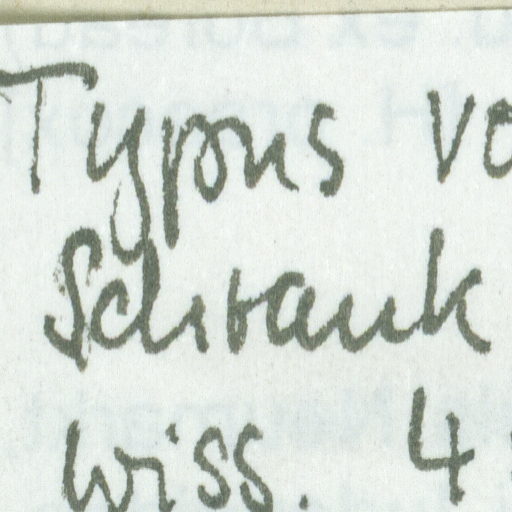 Typus vo
Schrank
wiss. 4